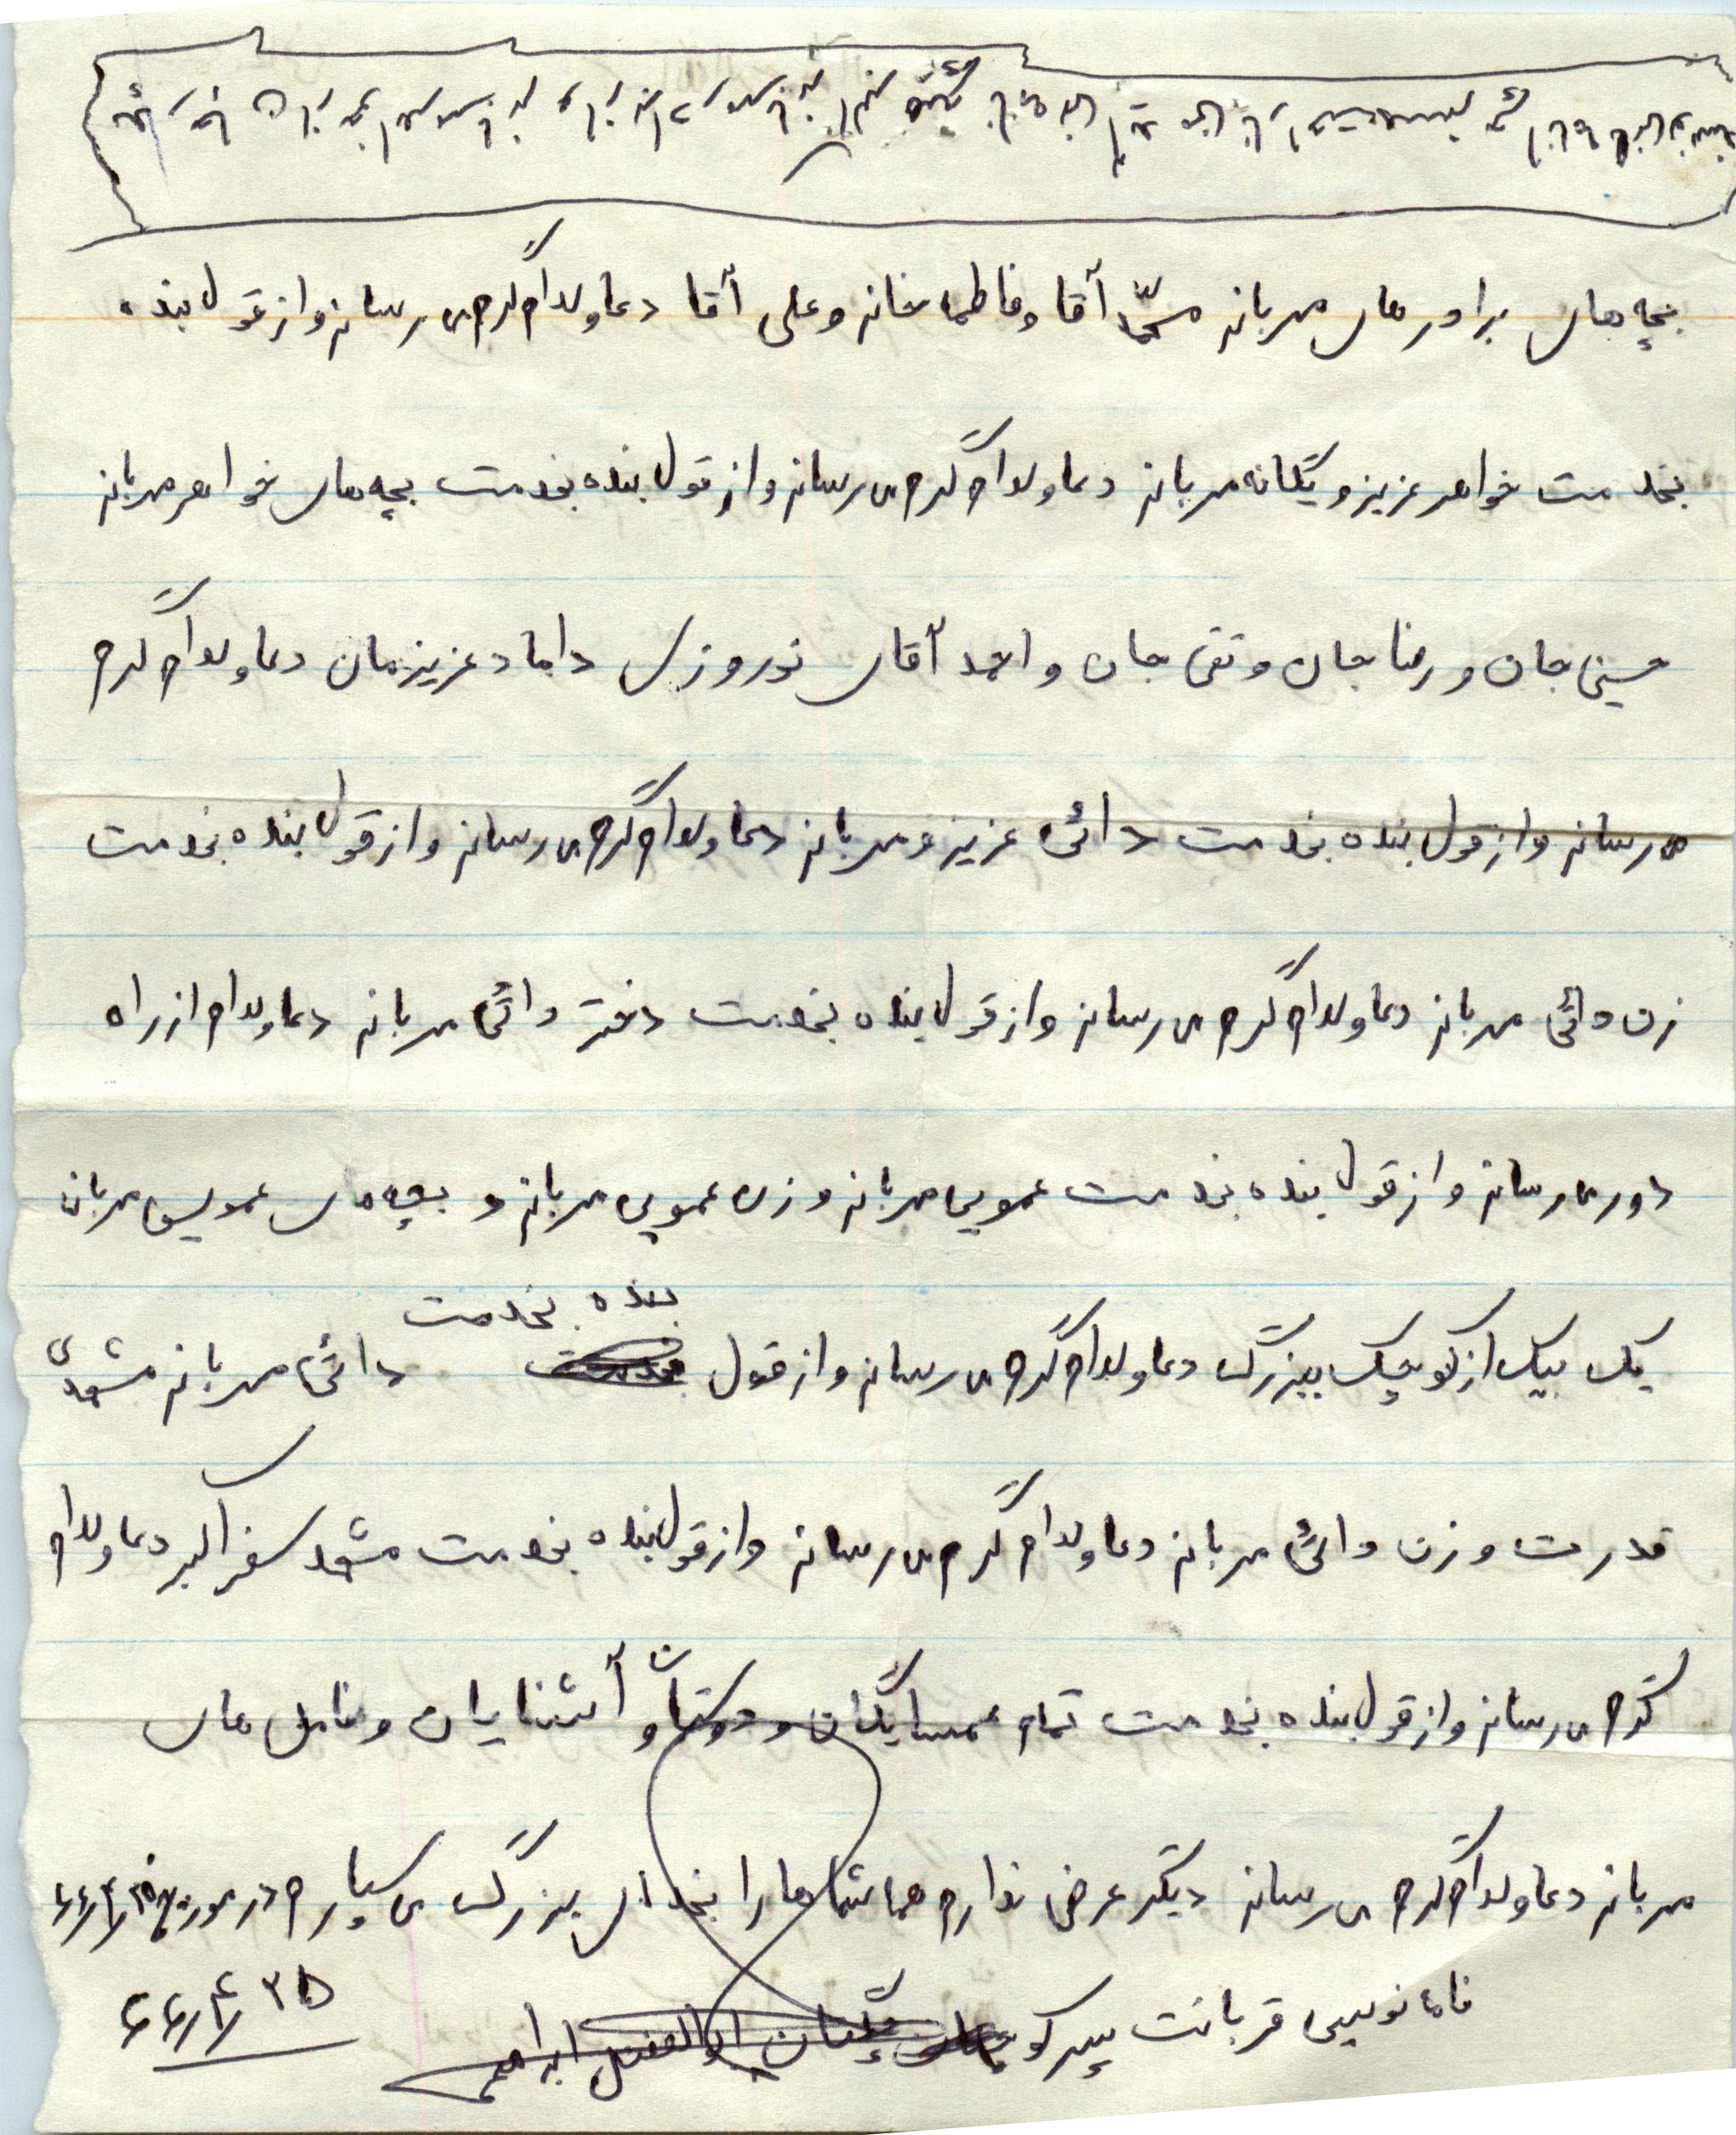 بچه های برادرهای مهربانم محمد آقا و فاطمه خانم و علی آقا دعا و سلام گرم می رسانم و از قول بنده
بخدمت خواهر عزیز و یگانه مهربانم دعا و سلام گرم می رسانم و از قول بنده بخدمت بچه های خواهر مهربانم
حسین جان و رضا جان و تقی جان و احمد آقای نوروزی داماد عزیزمان دعا و سلام گرم
می رسانم و از قول بنده بخدمت دائی عزیز و مهربانم دعا و سلام گرم می رسانم و از قول بنده بخدمت
زن دائی مهربانم دعا و سلام گرم می رسانم و از قول بنده بخدمت دختر دائی مهربانم دعا و سلام از راه
دور می رسانم و از قول بنده بخدمت عمویی مهربانم و زن عمویی مهربانم و بچه های عمویی مهربان
یک بیک از کوچک ببزرگ دعا و سلام گرم می رسانم و از قول بنده بخدمت دائی مهربانم مشهدی
قدرت و زن دائی مهربانم دعا و سلام گرم می رسانم و از قول بنده بخدمت مشهد سفر اکبر دعا و سلام
گرم می رسانم و از قول بنده بخدمت تمام همسایگان و دوستان و آشنایان و فامیل های
مهربانم دعا و سلام گرم می رسانم دیگر عرضی ندارم همه شماها را بخدای بزرگ می سپارم در مورخ ۲۵/۴/۶۶
نامه نویسی قربانت پسر کوچکتان ابوالفضل ابراهیمی
۲۵/۴/۶۶